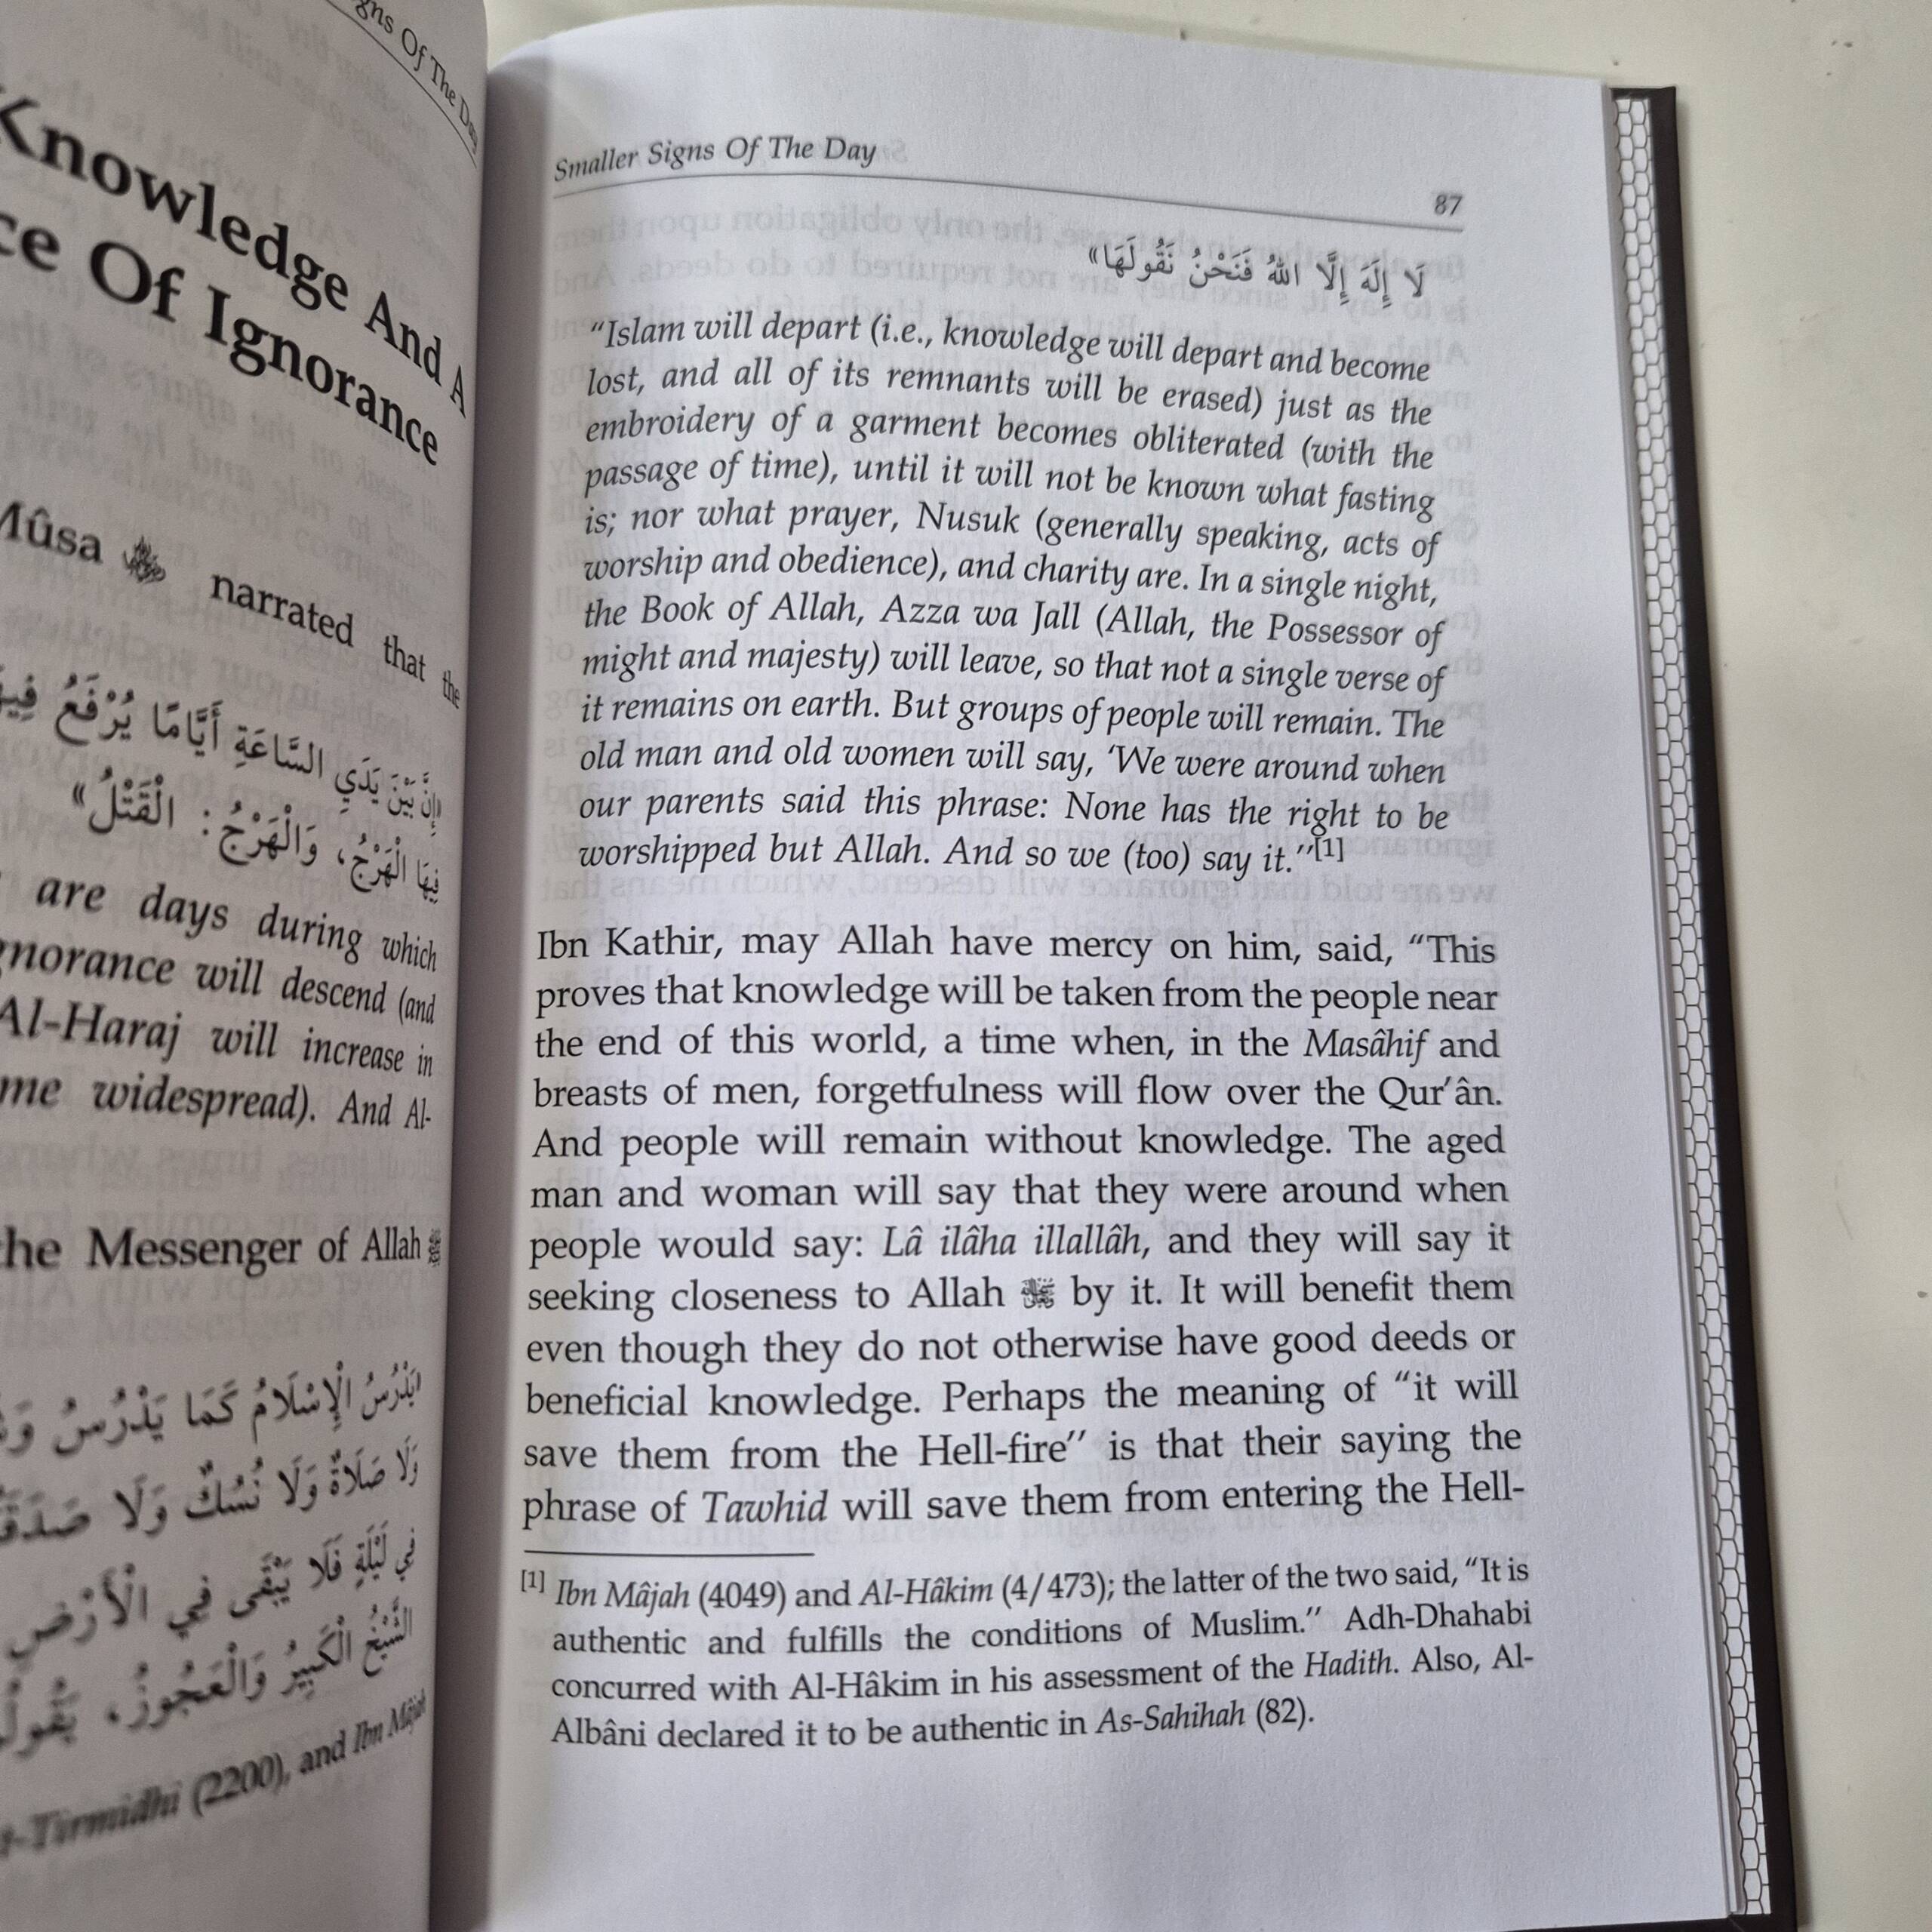 gns Of The Day
Knowledge And A
ce Of Ignorance
Mûsa narrated that the
إِنَّ بَيْنَ يَدَيِ السَّاعَةِ أَيَّامًا يُرْفَعُ
فِيهَا الْهَرْجُ، وَالْهَرْجُ: الْقَتْلُ»
are days during which
gnorance will descend (and
Al-Haraj will increase in
me widespread). And Al-
the Messenger of Allah ﷺ
يَدْرُسُ الْإِسْلَامُ كَمَا يَدْرُسُ
وَلَا صَلَاةٌ وَلَا نُسُكٌ وَلَا
فِي لَيْلَةٍ فَلَا يَبْقَى فِي الْأَرْضِ
الشَّيْخُ الْكَبِيرُ وَالْعَجُوزُ،
t-Tirmidhi (2200), and Ibn Mâjah
Smaller Signs Of The Day 87
لَا إِلَهَ إِلَّا اللهُ فَنَحْنُ نَقُولُهَا»
“Islam will depart (i.e., knowledge will depart and become
lost, and all of its remnants will be erased) just as the
embroidery of a garment becomes obliterated (with the
passage of time), until it will not be known what fasting
is; nor what prayer, Nusuk (generally speaking, acts of
worship and obedience), and charity are. In a single night,
the Book of Allah, Azza wa Jall (Allah, the Possessor of
might and majesty) will leave, so that not a single verse of
it remains on earth. But groups of people will remain. The
old man and old women will say, ‘We were around when
our parents said this phrase: None has the right to be
worshipped but Allah. And so we (too) say it.”[1]
Ibn Kathir, may Allah have mercy on him, said, “This
proves that knowledge will be taken from the people near
the end of this world, a time when, in the Masâhif and
breasts of men, forgetfulness will flow over the Qur’ân.
And people will remain without knowledge. The aged
man and woman will say that they were around when
people would say: Lâ ilâha illallâh, and they will say it
seeking closeness to Allah by it. It will benefit them
even though they do not otherwise have good deeds or
beneficial knowledge. Perhaps the meaning of “it will
save them from the Hell-fire” is that their saying the
phrase of Tawhid will save them from entering the Hell-
[1] Ibn Mâjah (4049) and Al-Hâkim (4/473); the latter of the two said, “It is
authentic and fulfills the conditions of Muslim.” Adh-Dhahabi
concurred with Al-Hâkim in his assessment of the Hadith. Also, Al-
Albâni declared it to be authentic in As-Sahihah (82).